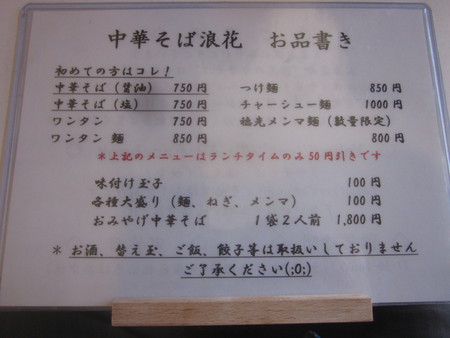 中華そば浪花　お品書き
初めての方はコレ！
中華そば（醤油）　750円　つけ麺　850円
中華そば（塩）　750円　チャーシュー麺　1000円
ワンタン　750円　穂先メンマ麺（数量限定）
ワンタン 麺　850円　800円
＊上記のメニューはランチタイムのみ50円引きです
味付け玉子　100円
各種大盛り（麺、ねぎ、メンマ）　100円
おみやげ中華そば　1袋2人前　1,800円
＊ お酒、替え玉、ご飯、餃子等は取扱いしておりません
ご了承ください(;0;)